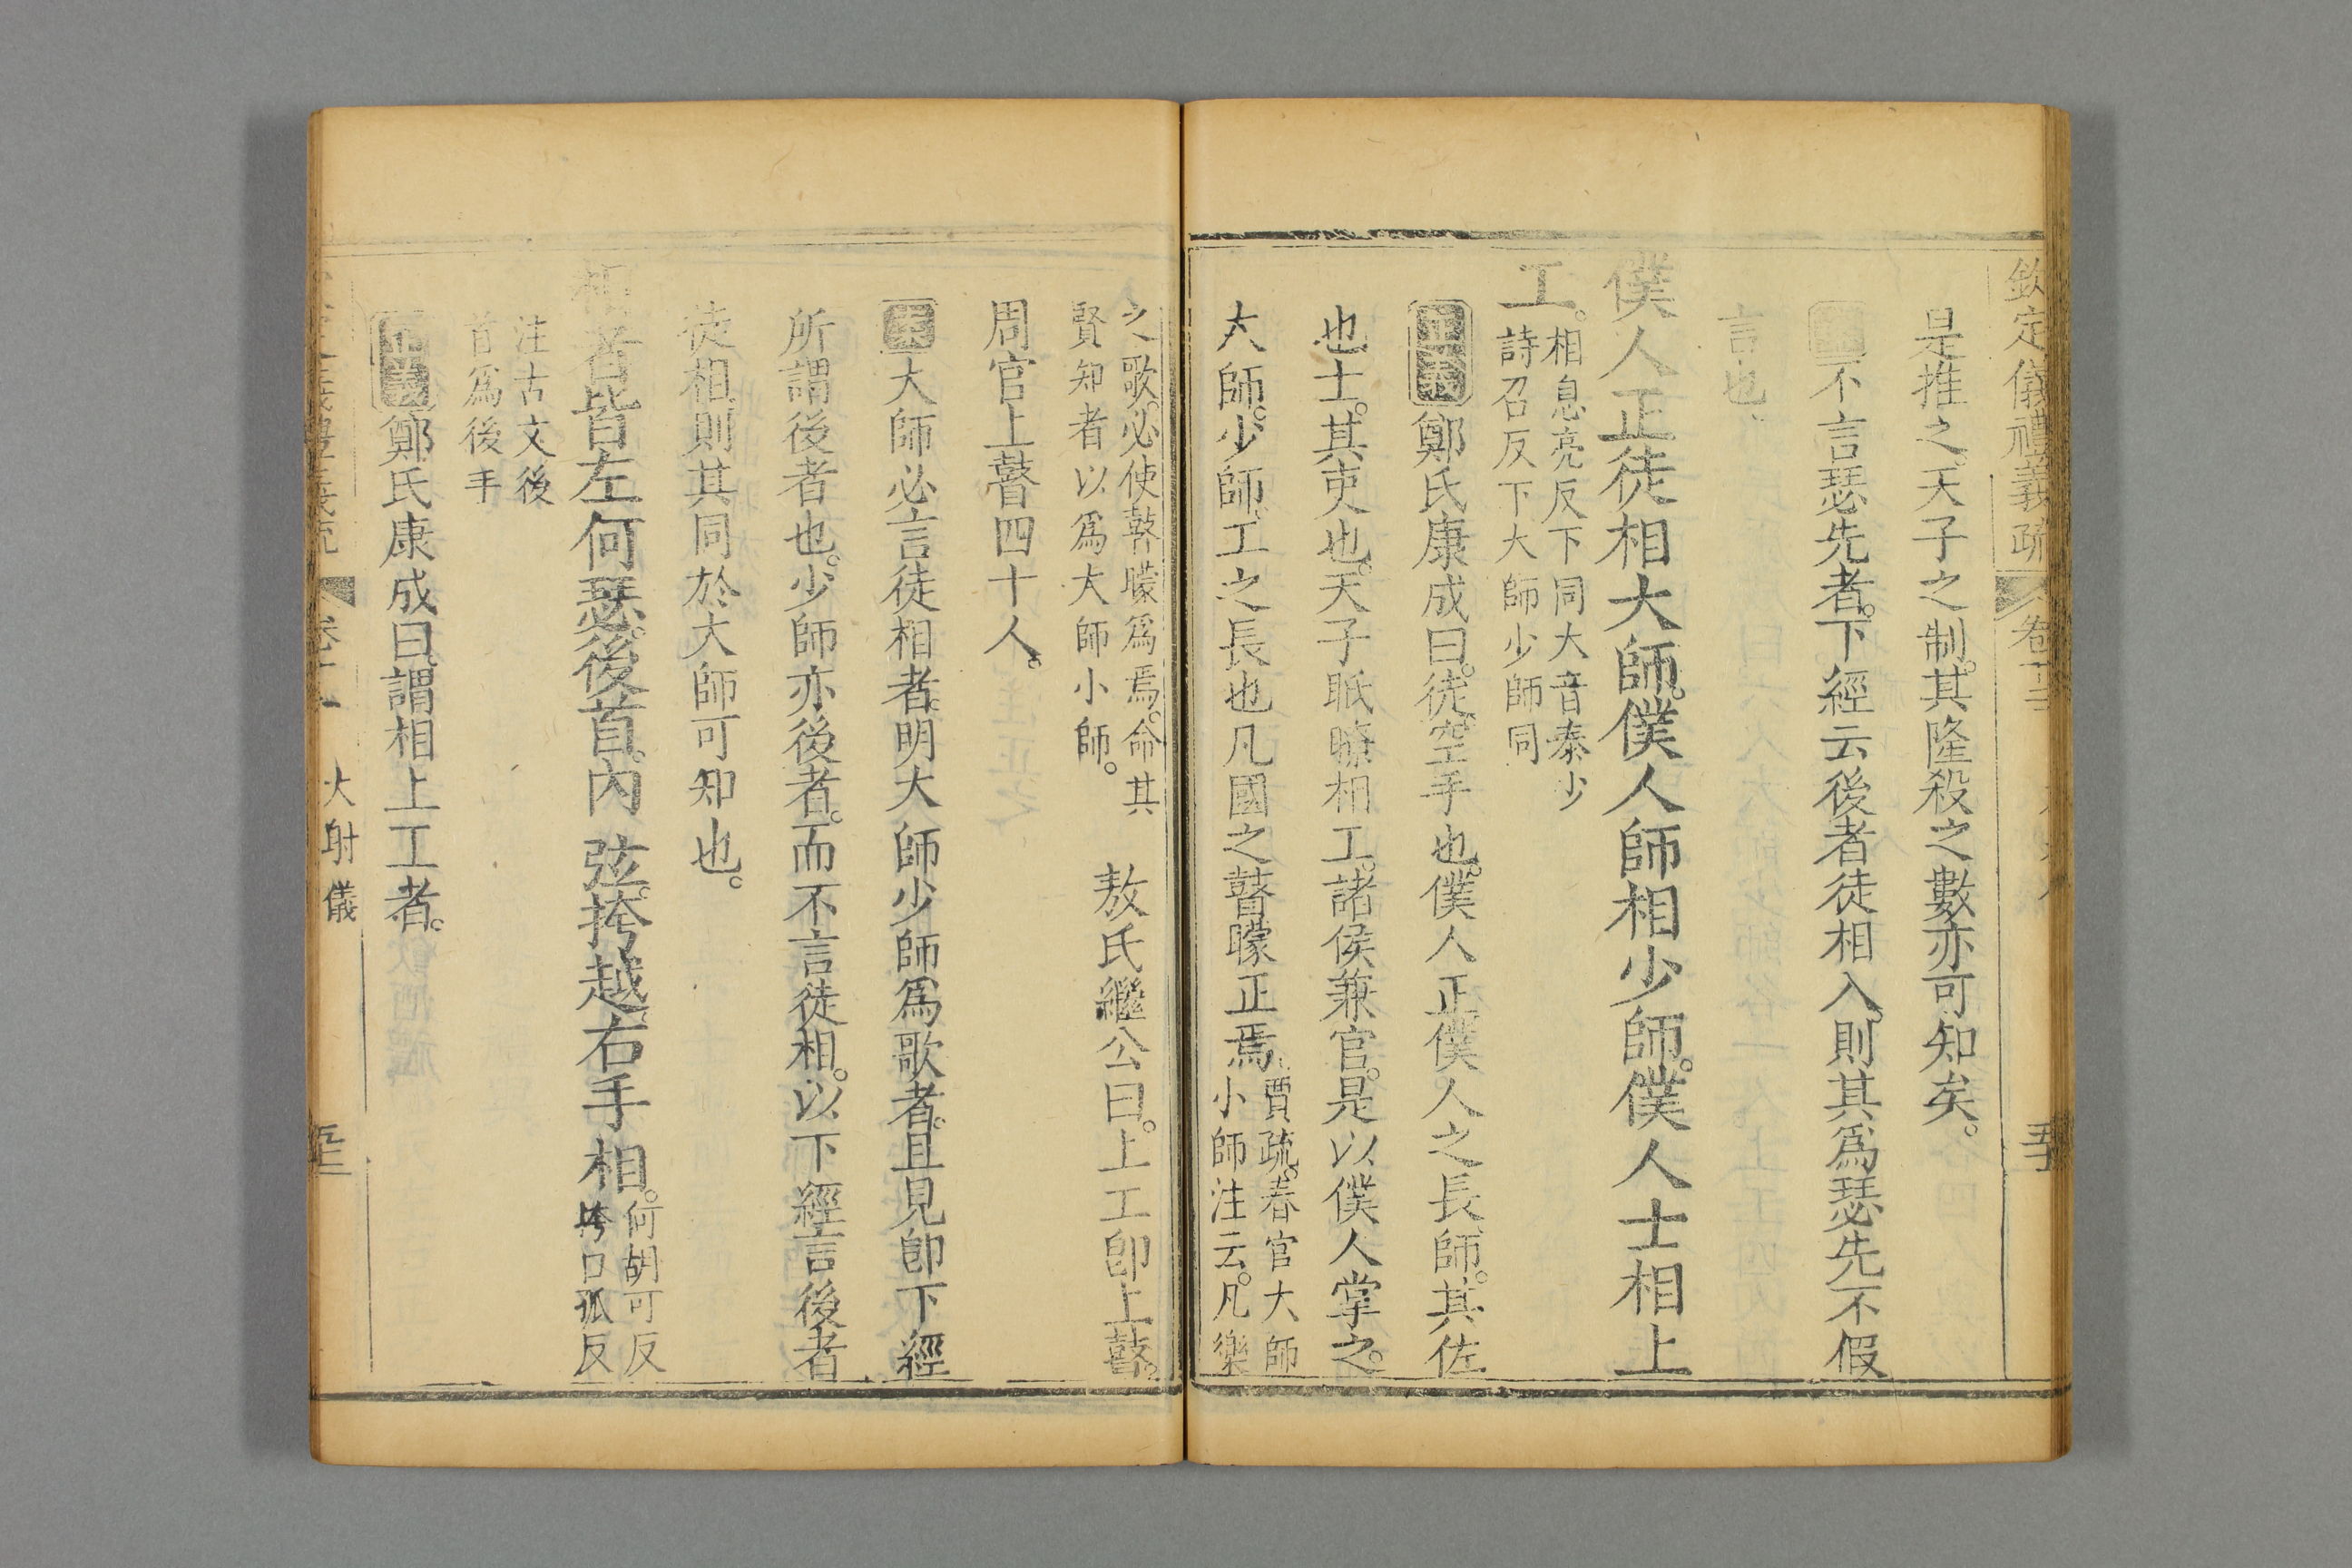 欽定儀禮義疏 卷十三
是推之天子之制。其隆殺之數亦可知矣。
不言瑟先者。下經云後者徒相入。則其爲瑟先不假
言也
僕人正徒相大師。僕人師相少師。僕人士相上
工。相息亮反下同大音泰少
詩召反下大師少師同
正義鄭氏康成曰。徒。空手也。僕人正僕人之長。師。其佐
也士。其吏也。天子眡瞭相工。諸侯兼官。是以僕人掌之。
大師。少師。工之長也凡國之瞽矇正焉。賈疏。春官大師
小師注云。凡樂
之歌。必使瞽矇爲焉。命其
賢知者以爲大師小師。
敖氏繼公曰。上工卽上瞽。
周官上瞽四十人。
大師必言徒相者。明大師少師爲歌者。且見卽下經
所謂後者也。少師亦後者。而不言徒相。以下經言後者
徒相。則其同於大師可知也。
相者皆左何瑟。後首。內弦。挎越。右手相。何胡可反
挎口孤反
注古文後
首爲後手
正義鄭氏康成曰。謂相上工者。
大射儀